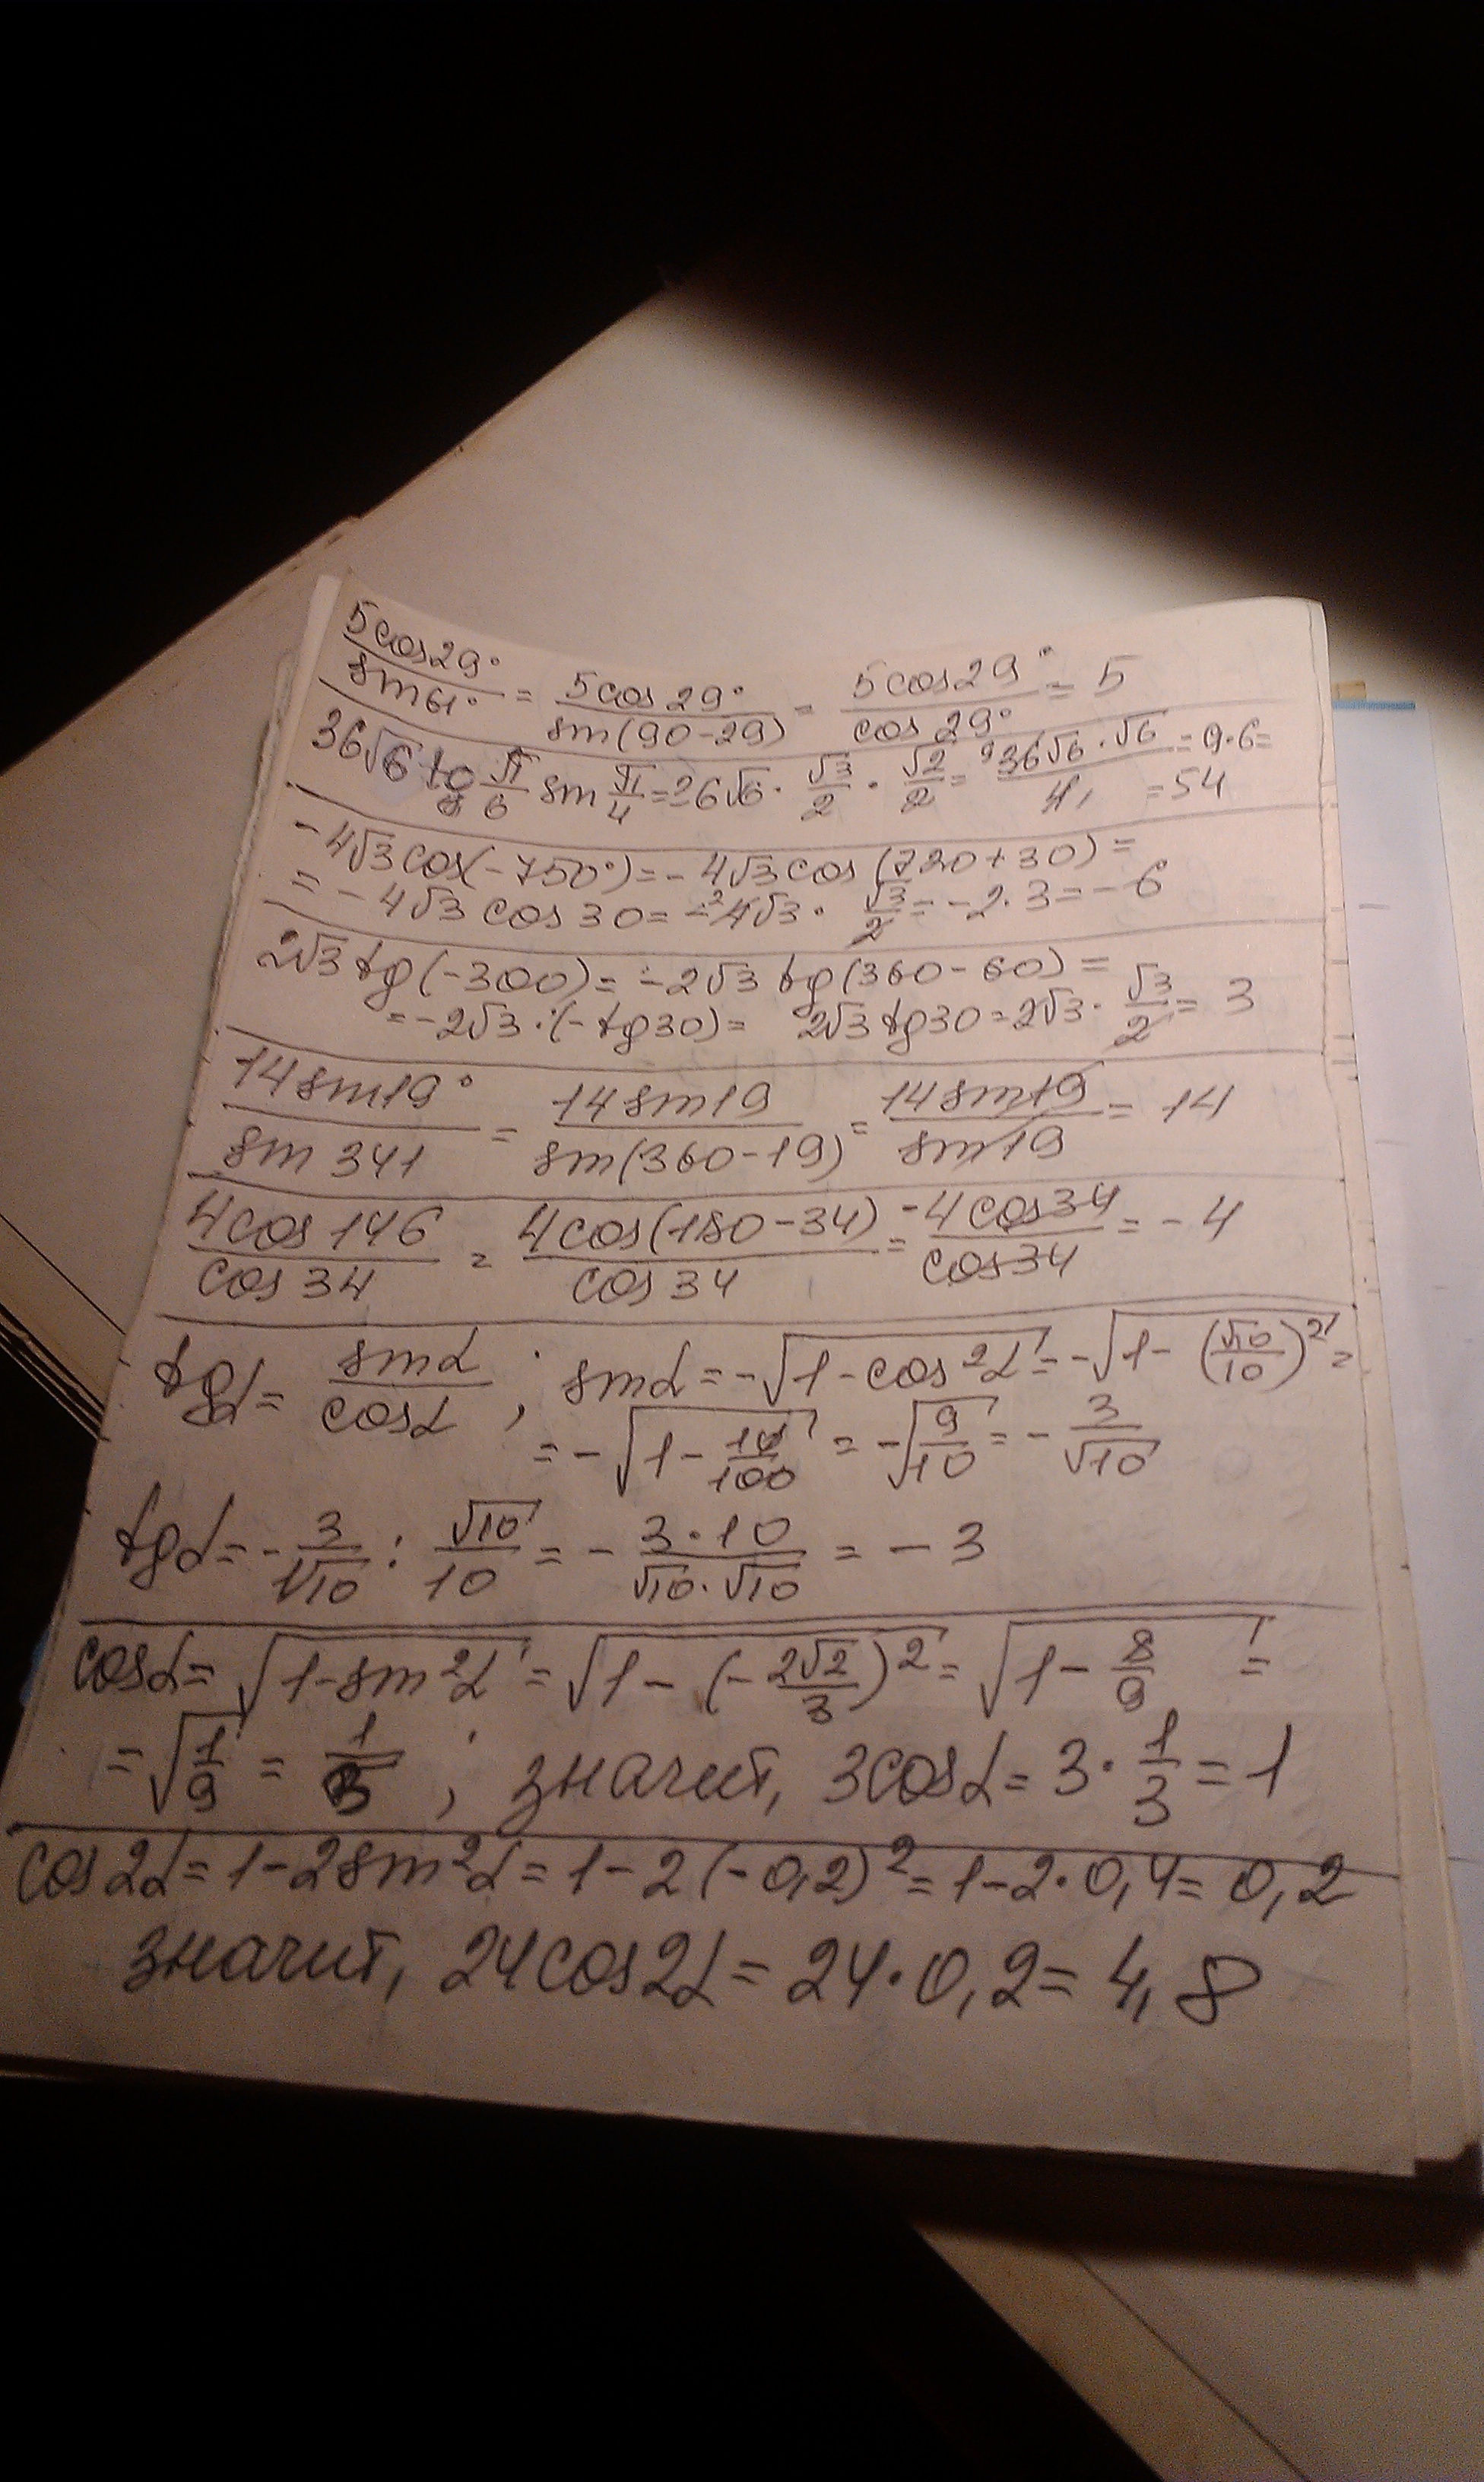 5cos29°/sin61° = 5cos29°/sin(90-29) = 5cos29°/cos29° = 5
36√6 tg π/6 sin π/4 = 36√6 · √3/2 · √2/2 = 36√6·√6/4 = 9·6=
=54
-4√3cos(-750°)=-4√3cos(720+30)=
=-4√3cos30=-4√3·√3/2=-2·3=-6
2√3tg(-300)=-2√3tg(360-60)=
=-2√3·(-tg30)= 2√3tg30=2√3·√3/2=3
14sin19°/sin341 = 14sin19/sin(360-19) = 14sin19/sin19 = 14
4cos146/cos34 = 4cos(180-34)/cos34 = -4cos34/cos34 = -4
tgα = sinα/cosα ; sinα=-√(1-cos²α)=-√(1-(√10/10)²)=
=-√(1-10/100)=-√(9/10)=-3/√10
tgα=-3/√10 : √10/10 = -3·10/(√10·√10) = -3
cosα=√(1-sin²α)=√(1-(-2√2/3)²)=√(1-8/9)=
=√(1/9)=1/3 ; значит, 3cosα=3·1/3=1
cos2α=1-2sin²α=1-2(-0,2)²=1-2·0,4=0,2
значит, 24cos2α=24·0,2=4,8